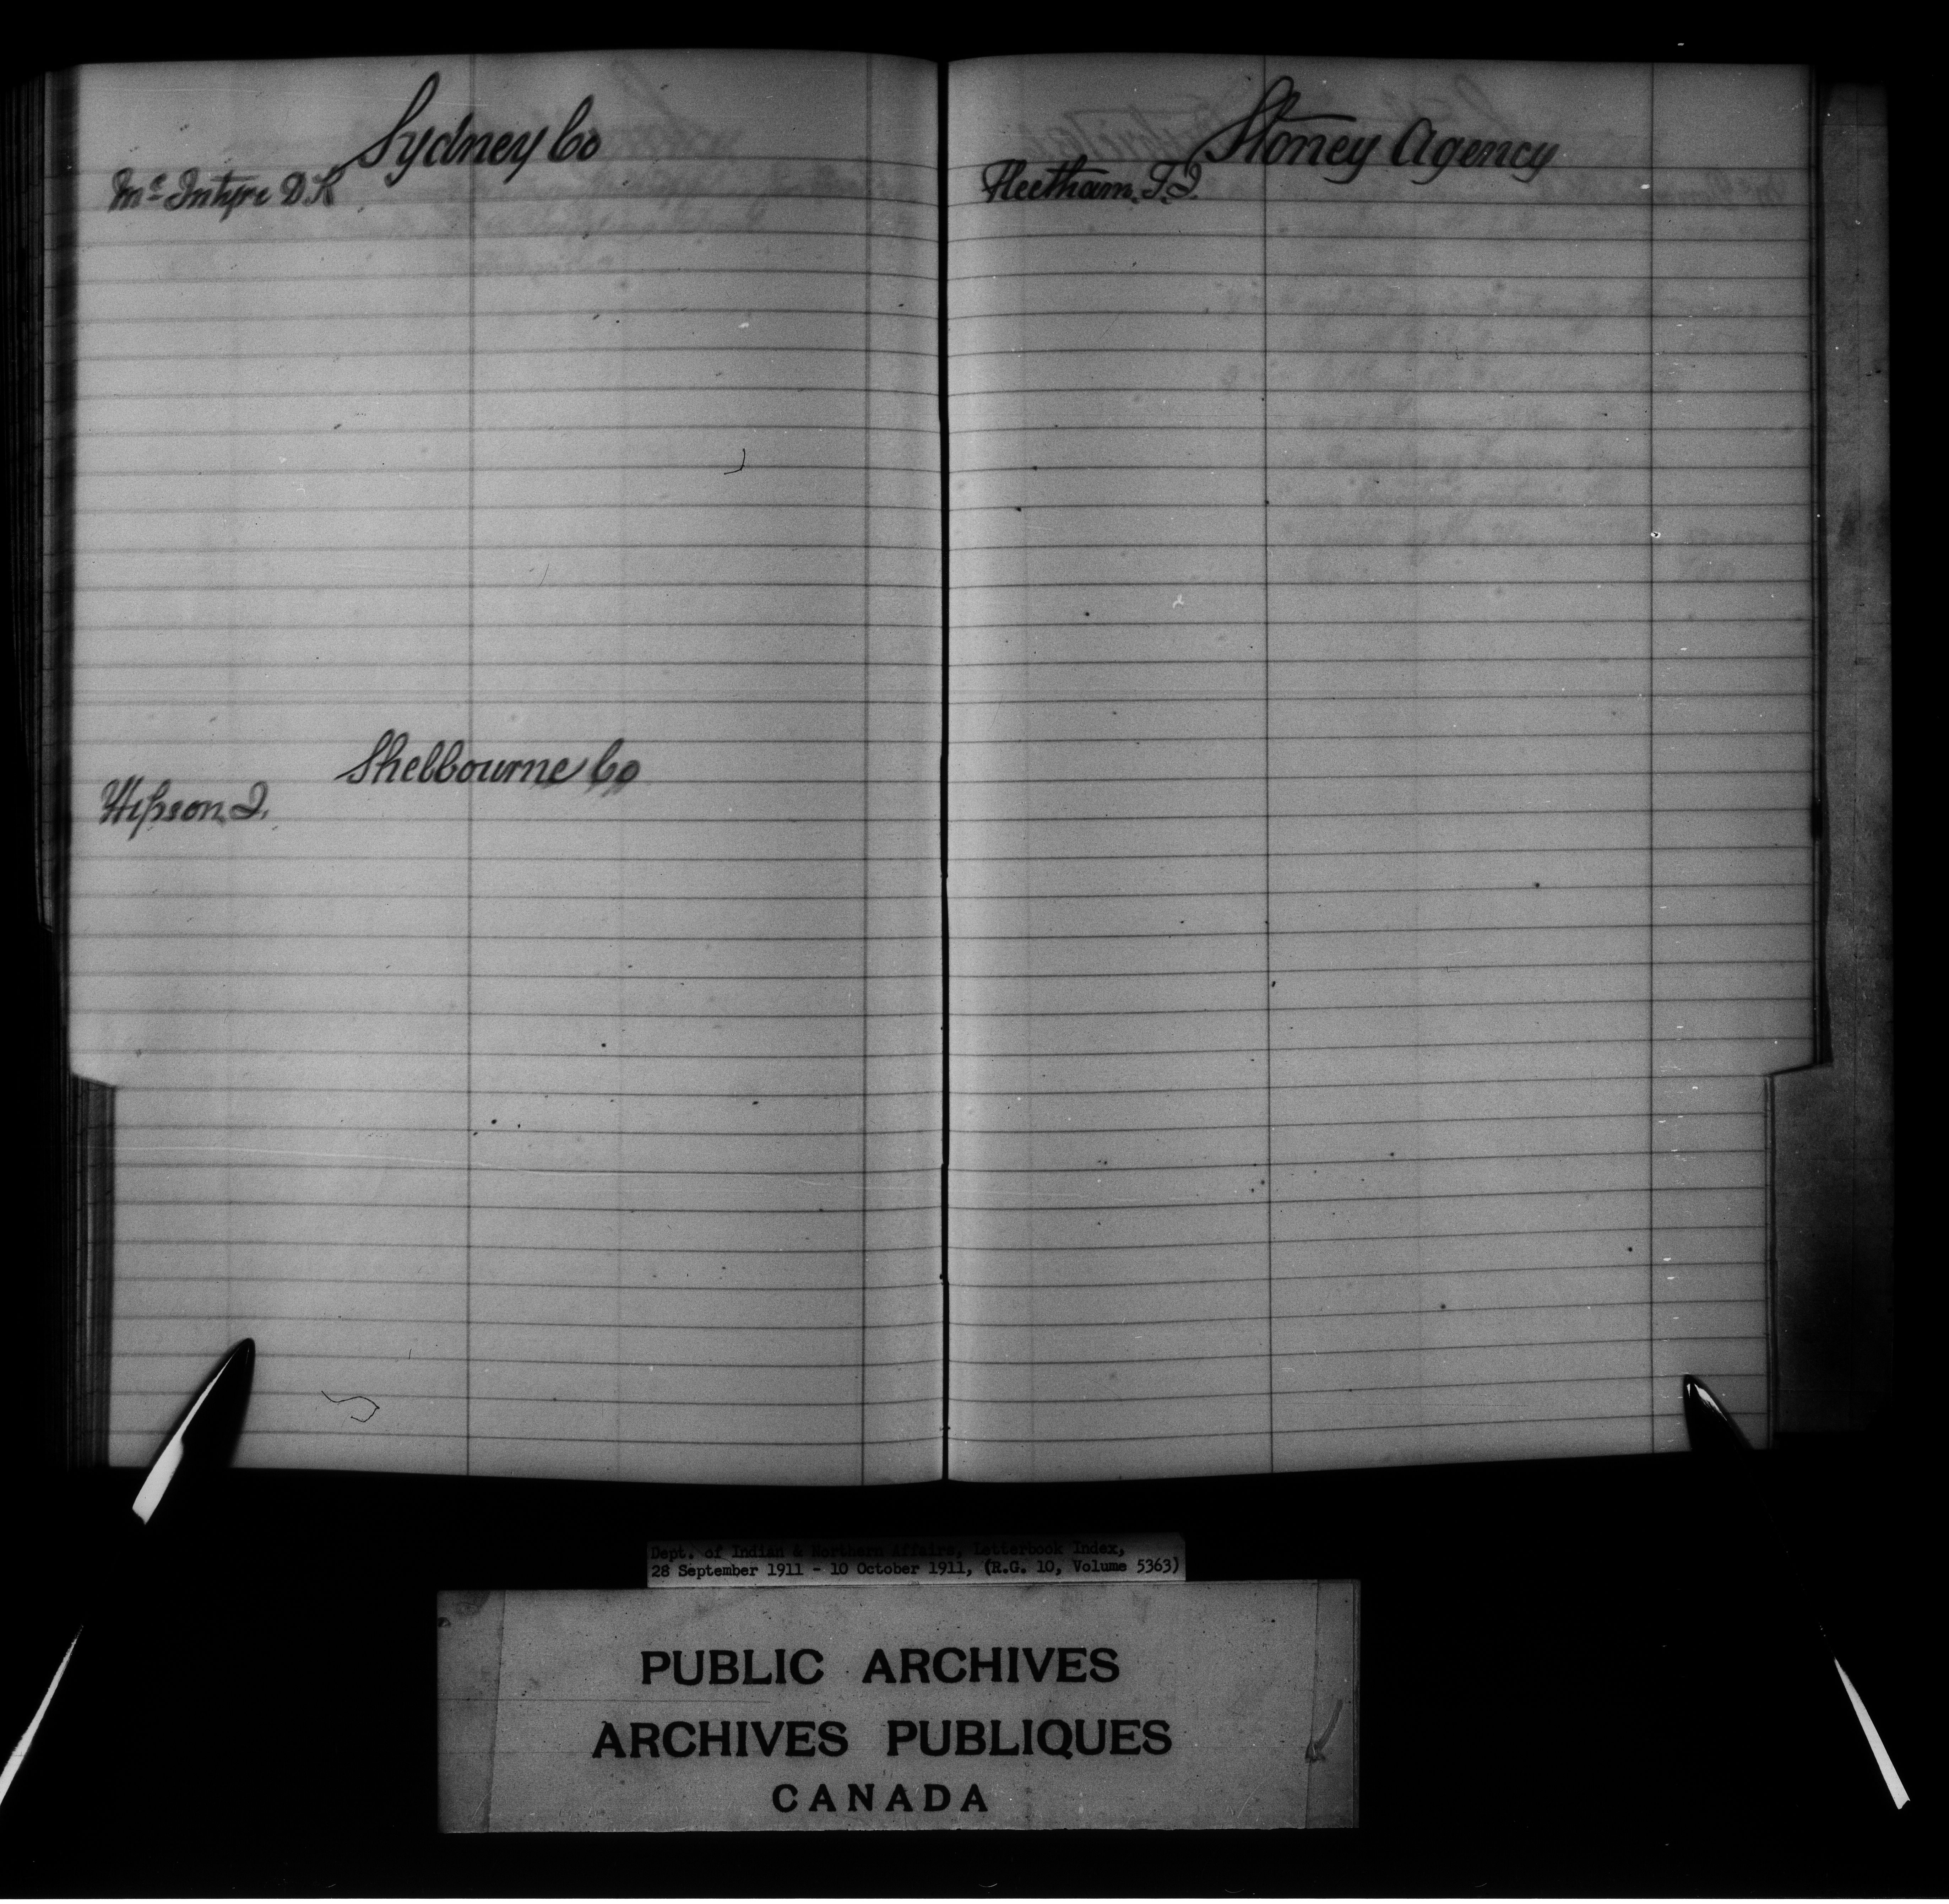 Sydney Co
Mc Intyre D K
Shelbourne Co
Hipson J.
Stoney Agency
Fleetham. T. J.
Dept. of Indian & Northern Affairs, Letterbook Index,
28 September 1911 - 10 October 1911, (R.G. 10, Volume 5363)
PUBLIC ARCHIVES
ARCHIVES PUBLIQUES
CANADA